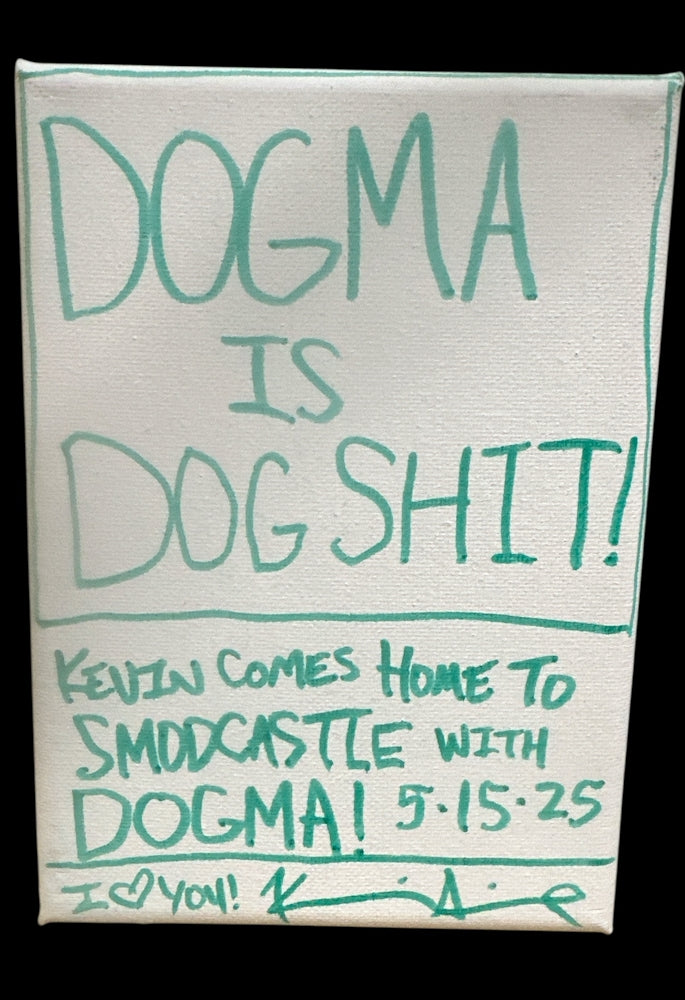 DOGMA
IS
DOG SHIT!
KEVIN COMES HOME TO
SMODCASTLE WITH
DOGMA! 5.15.25
I ♡ YOU!